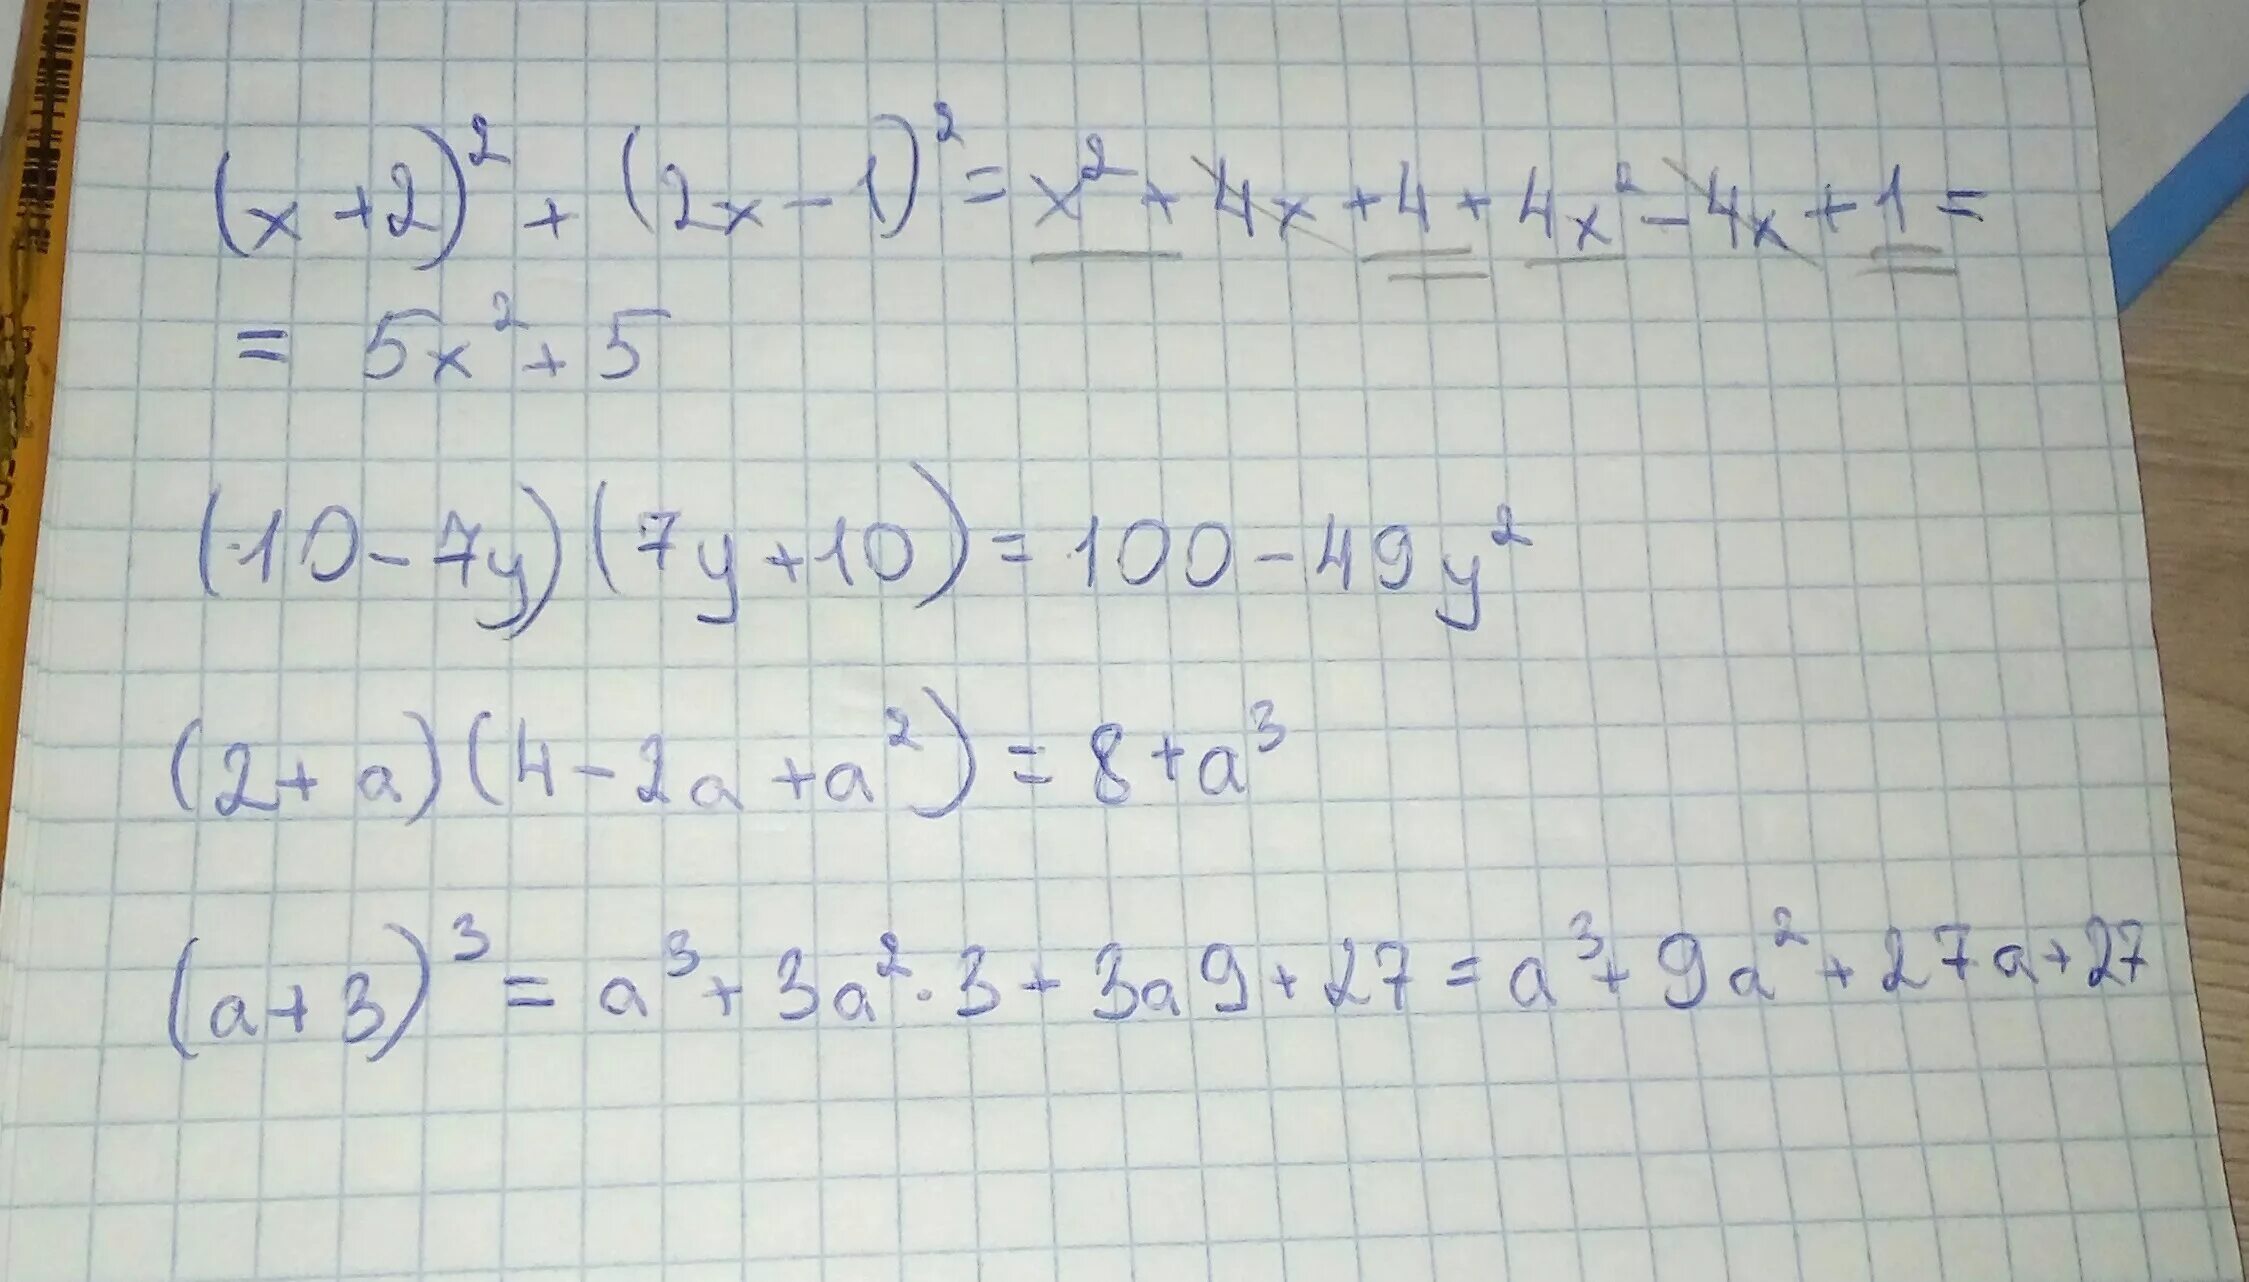 (x+2)² + (2x-1)² = x² + 4x + 4 + 4x² - 4x + 1 =
= 5x² + 5
(10-7y)(7y+10) = 100 - 49y²
(2+a)(4-2a+a²) = 8+a³
(a+3)³ = a³ + 3a²·3 + 3a9 + 27 = a³ + 9a² + 27a + 27